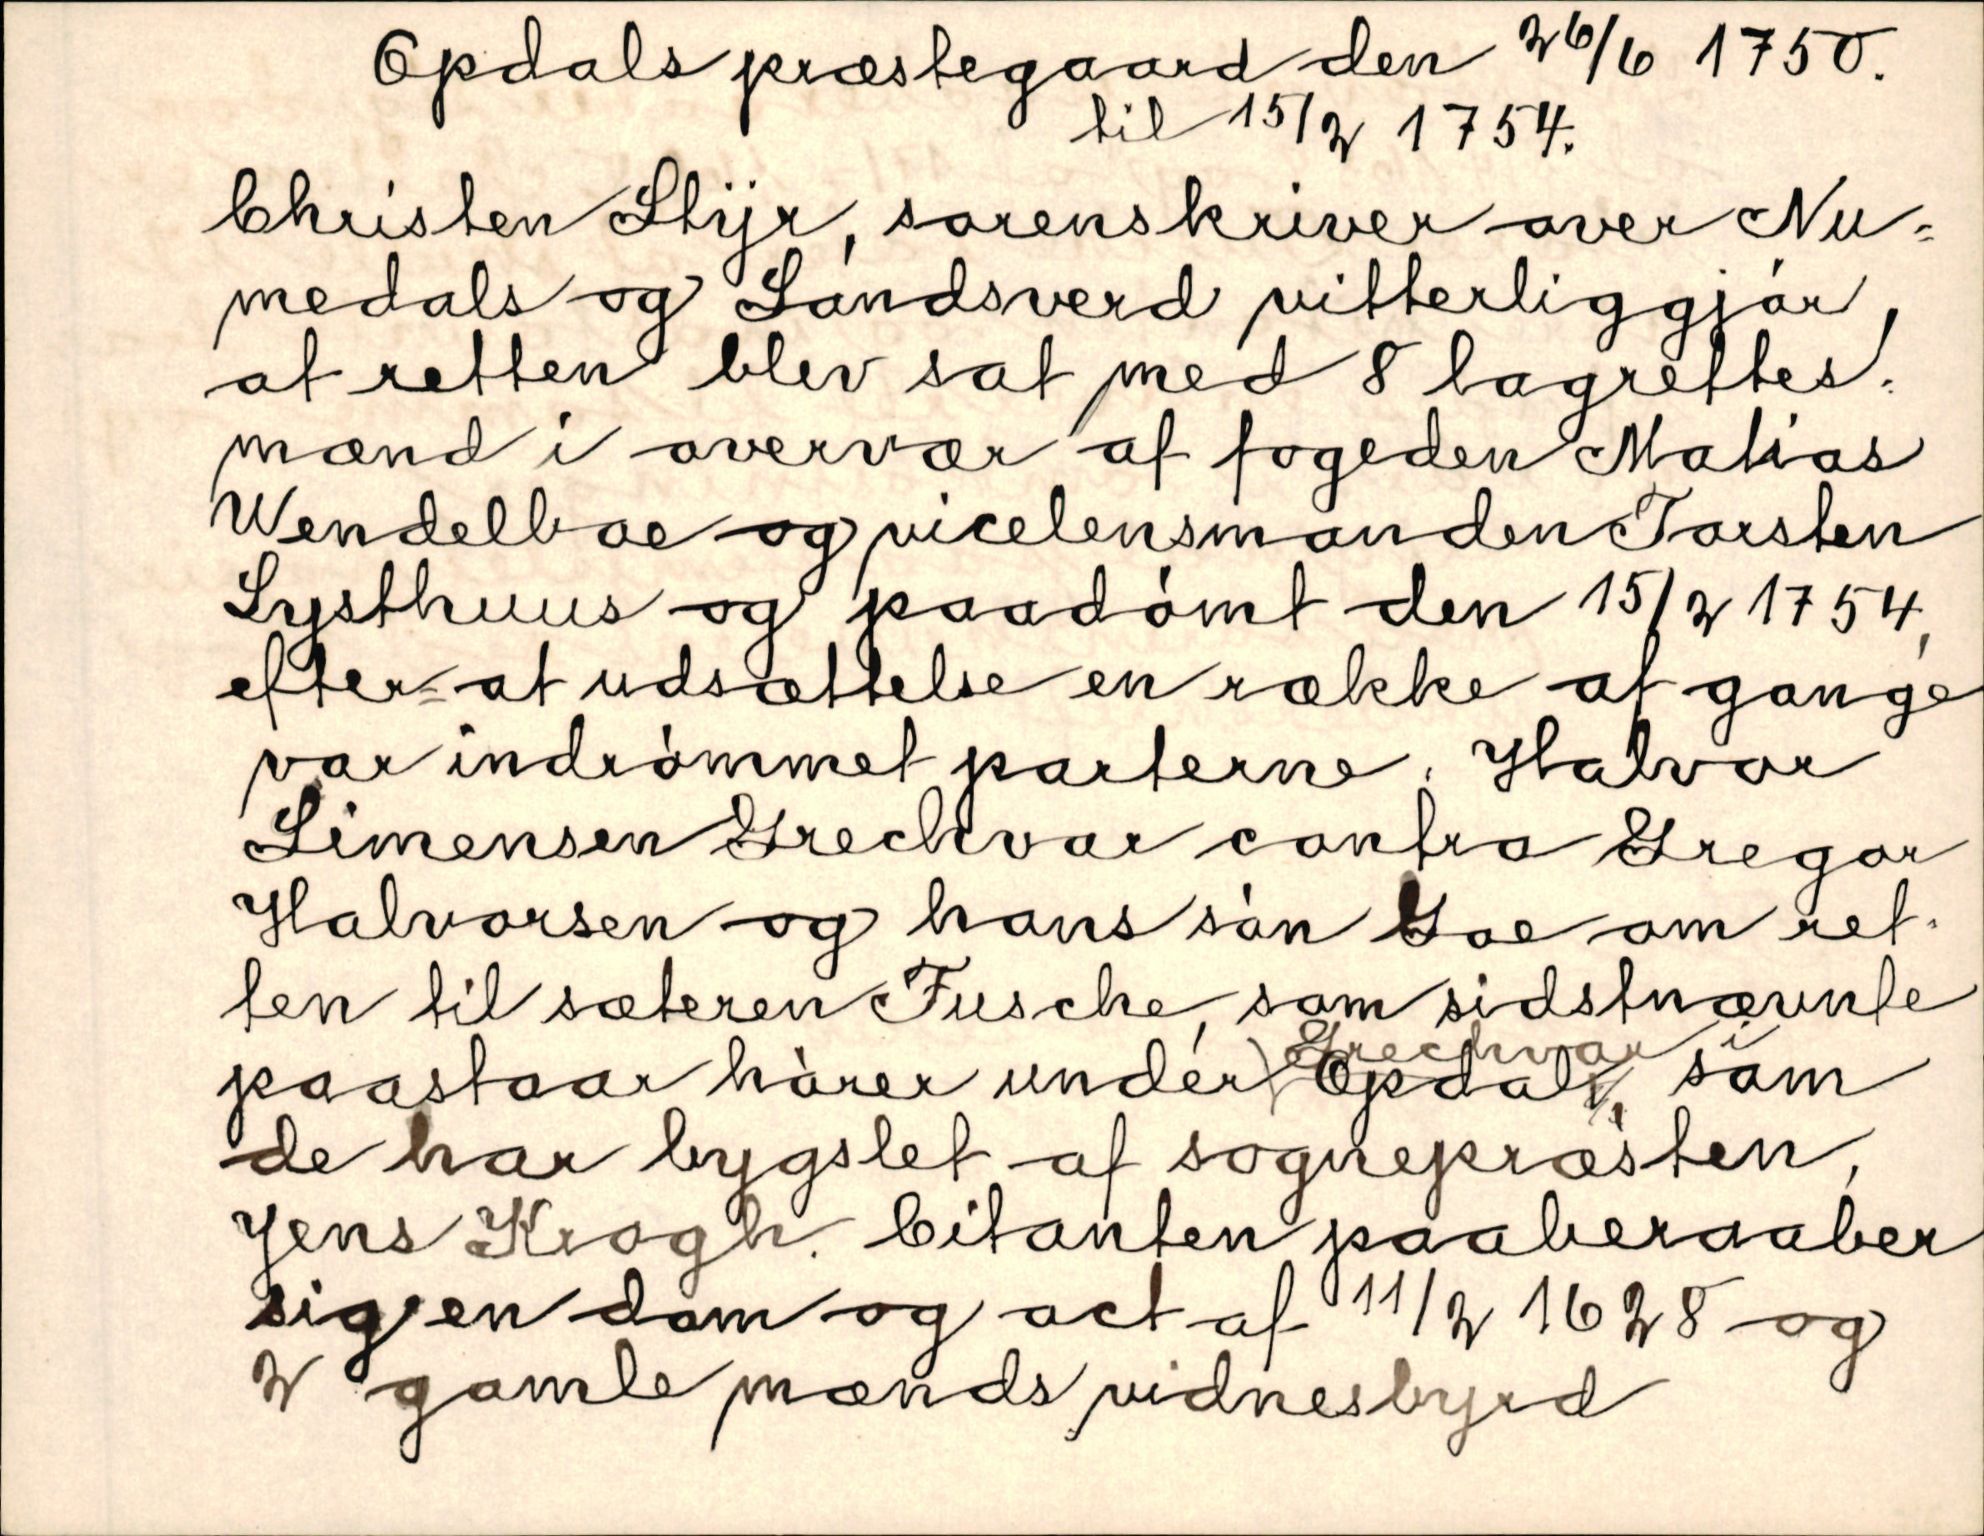 Opdals præstegaard den 26/6 1750.
til 15/2 1754.
Christen Stijr, sorenskriver over Nu=
medals og Sandsverd vitterliggjór,
at retten blev sat med 8 lagrettes=
mænd i overvær af fogeden Matias
Wendelboe og vicelensmanden Torsten
Lysthuus og paadómt den 15/2 1754,
efter=at udsættelse en række af gange
var indrómmet parterne. Halvor
Simensen Grechvar contra Gregar
Halvorsen og hans són Goe om ret=
ten til sæteren Fusche, som sidstnævnte
Grechvar i
paastaar hórer under Opdal, som
de har bygslet af sognepræsten,
Jens Krogh. Citanten paaberaaber
sig en dom og act af 11/2 1628 og
2 gamle mænds vidnesbyrd